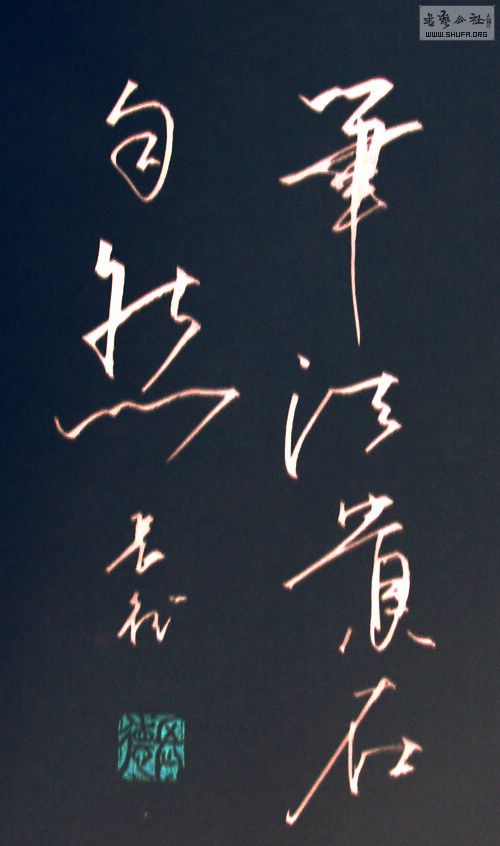 筆法貴在
自然
書藝公社
WWW.SHUFA.ORG